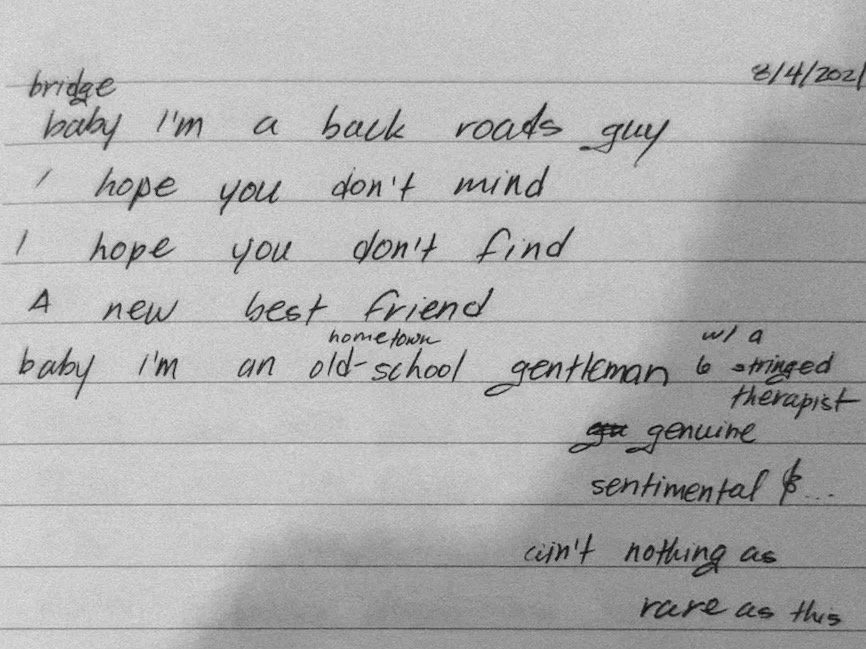 8/4/2021
bridge
baby I'm a back roads guy
I hope you don't mind
I hope you don't find
A new best friend
hometown w/ a
baby I'm an old-school gentleman 6 stringed
therapist
genuine
sentimental & ...
ain't nothing as
rare as this